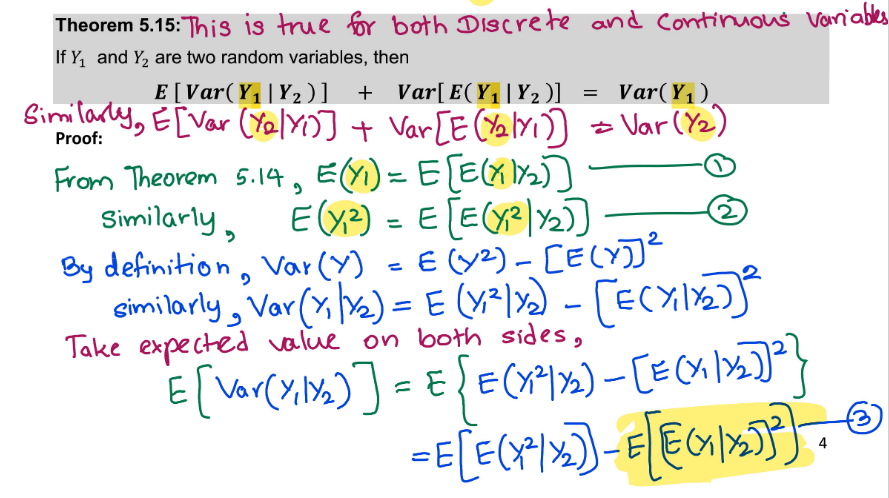 Theorem 5.15: This is true for both Discrete and Continuous Variables
If Y₁ and Y₂ are two random variables, then
E [ Var( Y₁ | Y₂ ) ] + Var[ E( Y₁ | Y₂ )] = Var( Y₁ )
Similarly, E[Var (Y₂|Y₁)] + Var[E(Y₂|Y₁)] = Var(Y₂)
Proof:
From Theorem 5.14, E(Y₁) = E[E(Y₁|Y₂)] ①
Similarly, E(Y₁²) = E[E(Y₁²|Y₂)] ②
By definition, Var(Y) = E(Y²) – [E(Y)]²
similarly, Var(Y₁|Y₂) = E(Y₁²|Y₂) – [E(Y₁|Y₂)]²
Take expected value on both sides,
E[Var(Y₁|Y₂)] = E{E(Y₁²|Y₂) – [E(Y₁|Y₂)]²}
= E[E(Y₁²|Y₂)] – E[[E(Y₁|Y₂)]²] ③
4